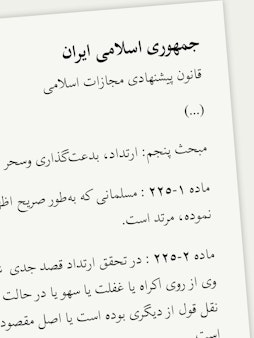 جمهوری اسلامی ایران
قانون پیشنهادی مجازات اسلامی
(...)
مبحث پنجم: ارتداد، بدعت‌گذاری وسحر
ماده ۱-۲۲۵ : مسلمانی که به‌طور صریح
نموده، مرتد است.
ماده ۲-۲۲۵ : در تحقق ارتداد قصد جدی
وی از روی اکراه یا غفلت یا سهو یا در حالت
نقل قول از دیگری بوده است یا اصل مقصود
است.